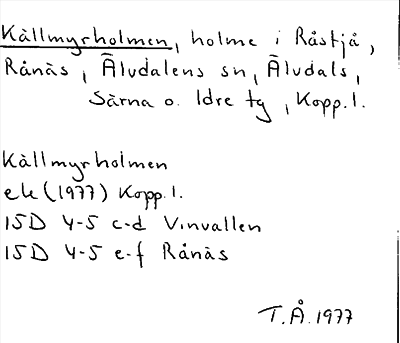 Källmyrholmen, holme i Råstjå,
Rånäs, Älvdalens sn, Älvdals,
Särna o. Idre tg, Kopp.l.
Källmyrholmen
ek (1977) Kopp.l.
15D 4-5 c-d Vinvallen
15D 4-5 e-f Rånäs
T.Å. 1977